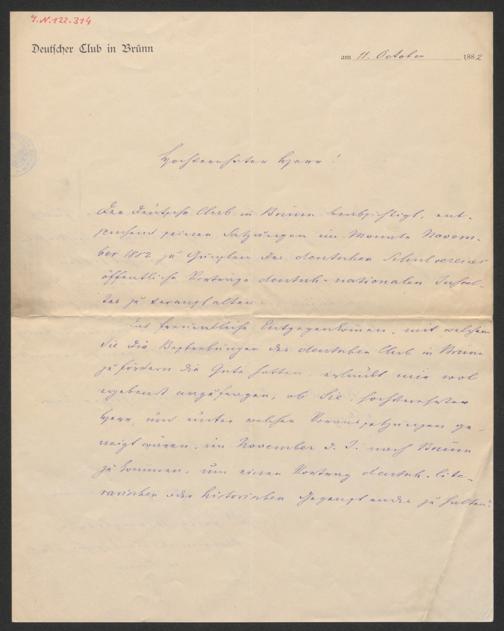 I.N.122.314
Deutscher Club in Brünn
am 11. October 1882
Hochverehrter Herr!
Der Deutsche Club in Brünn beabsichtigt, ent-
sprechend seinen Satzungen im Monate Novem-
ber 1882 zu Gunsten des deutschen Schulvereines
öffentliche Vorträge deutsch-nationalen Inhal-
tes zu veranstalten.
Das freundliche Entgegenkommen, mit welchem
Sie die Bestrebungen des deutschen Club in Brünn
zu fördern die Güte hatten, erlaubt mir wol
ergebenst anzufragen, ob Sie, hochverehrter
Herr, und unter welchen Voraussetzungen ge-
neigt wären, im November d. J. nach Brünn
zu kommen, um einen Vortrag deutsch-lite-
rarischen oder historischen Gegenstandes zu halten?